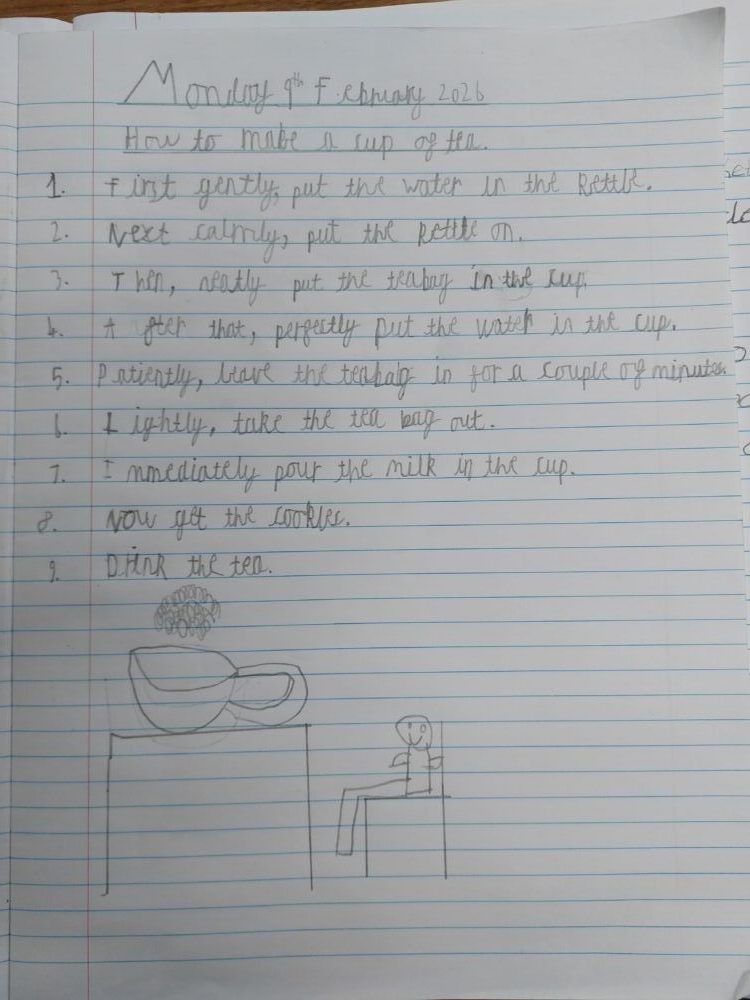 Monday 9th February 2026
How to make a cup of tea.
1. First gently, put the water in the kettle.
2. Next calmly, put the kettle on.
3. Then, neatly put the teabag in the cup.
4. After that, perfectly put the water in the cup.
5. Patiently, leave the teabag in for a couple of minutes.
6. Lightly, take the tea bag out.
7. Immediately pour the milk in the cup.
8. Now get the cookies.
9. Drink the tea.